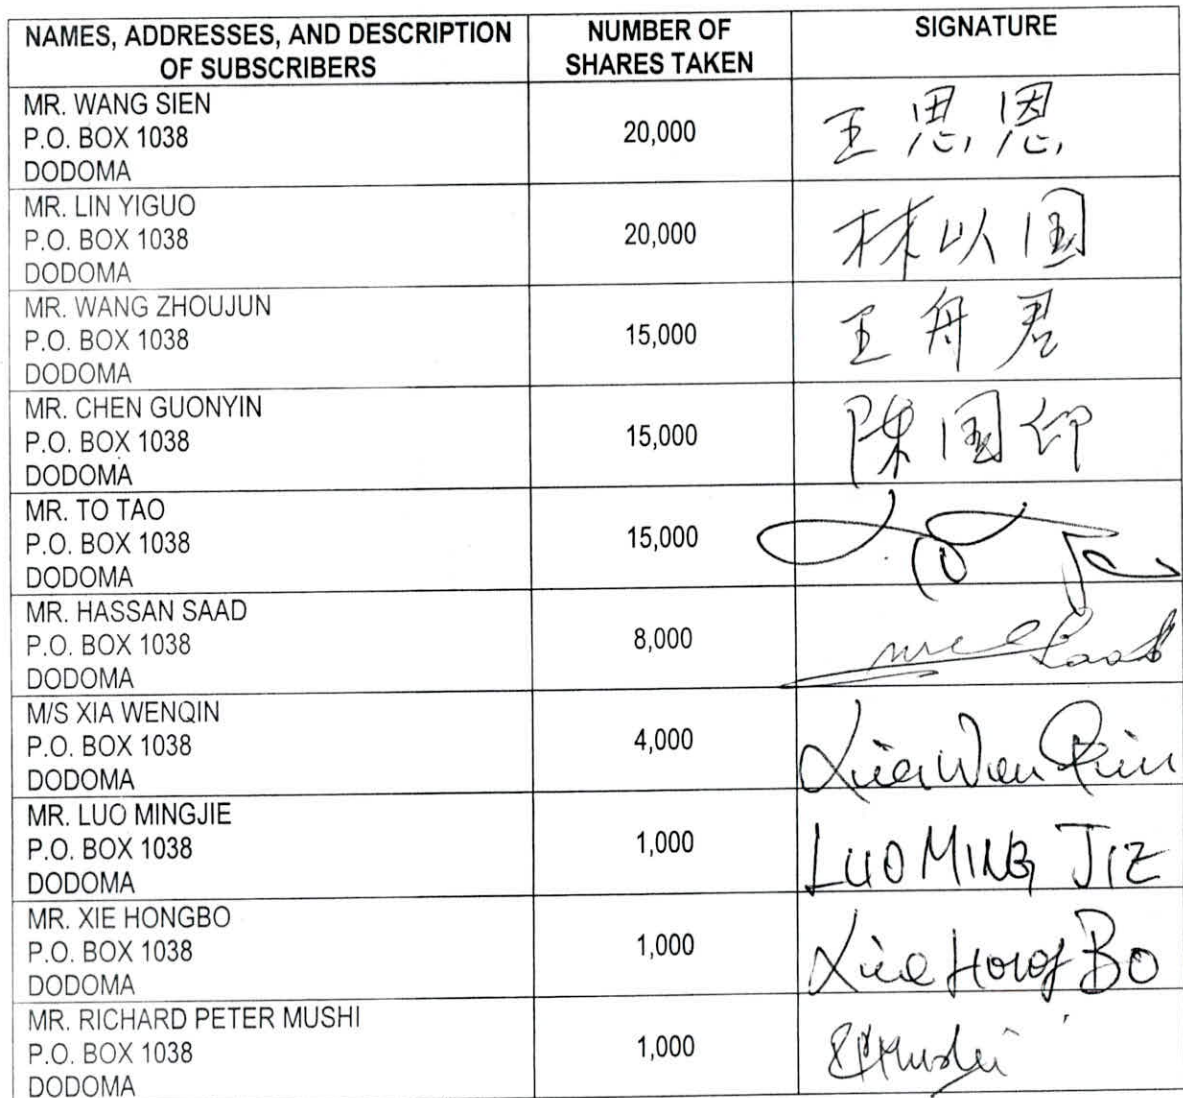 NAMES, ADDRESSES, AND DESCRIPTION
OF SUBSCRIBERS
NUMBER OF
SHARES TAKEN
SIGNATURE
MR. WANG SIEN
P.O. BOX 1038
DODOMA
20,000
王思恩
MR. LIN YIGUO
P.O. BOX 1038
DODOMA
20,000
林以国
MR. WANG ZHOUJUN
P.O. BOX 1038
DODOMA
15,000
王舟君
MR. CHEN GUONYIN
P.O. BOX 1038
DODOMA
15,000
陳国仰
MR. TO TAO
P.O. BOX 1038
DODOMA
15,000
MR. HASSAN SAAD
P.O. BOX 1038
DODOMA
8,000
Saad
M/S XIA WENQIN
P.O. BOX 1038
DODOMA
4,000
Xia Wen Qin
MR. LUO MINGJIE
P.O. BOX 1038
DODOMA
1,000
LUO MING JIE
MR. XIE HONGBO
P.O. BOX 1038
DODOMA
1,000
Xie Hong Bo
MR. RICHARD PETER MUSHI
P.O. BOX 1038
DODOMA
1,000
RPMushi